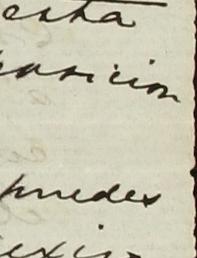 esta
posicion
puedes
exis-